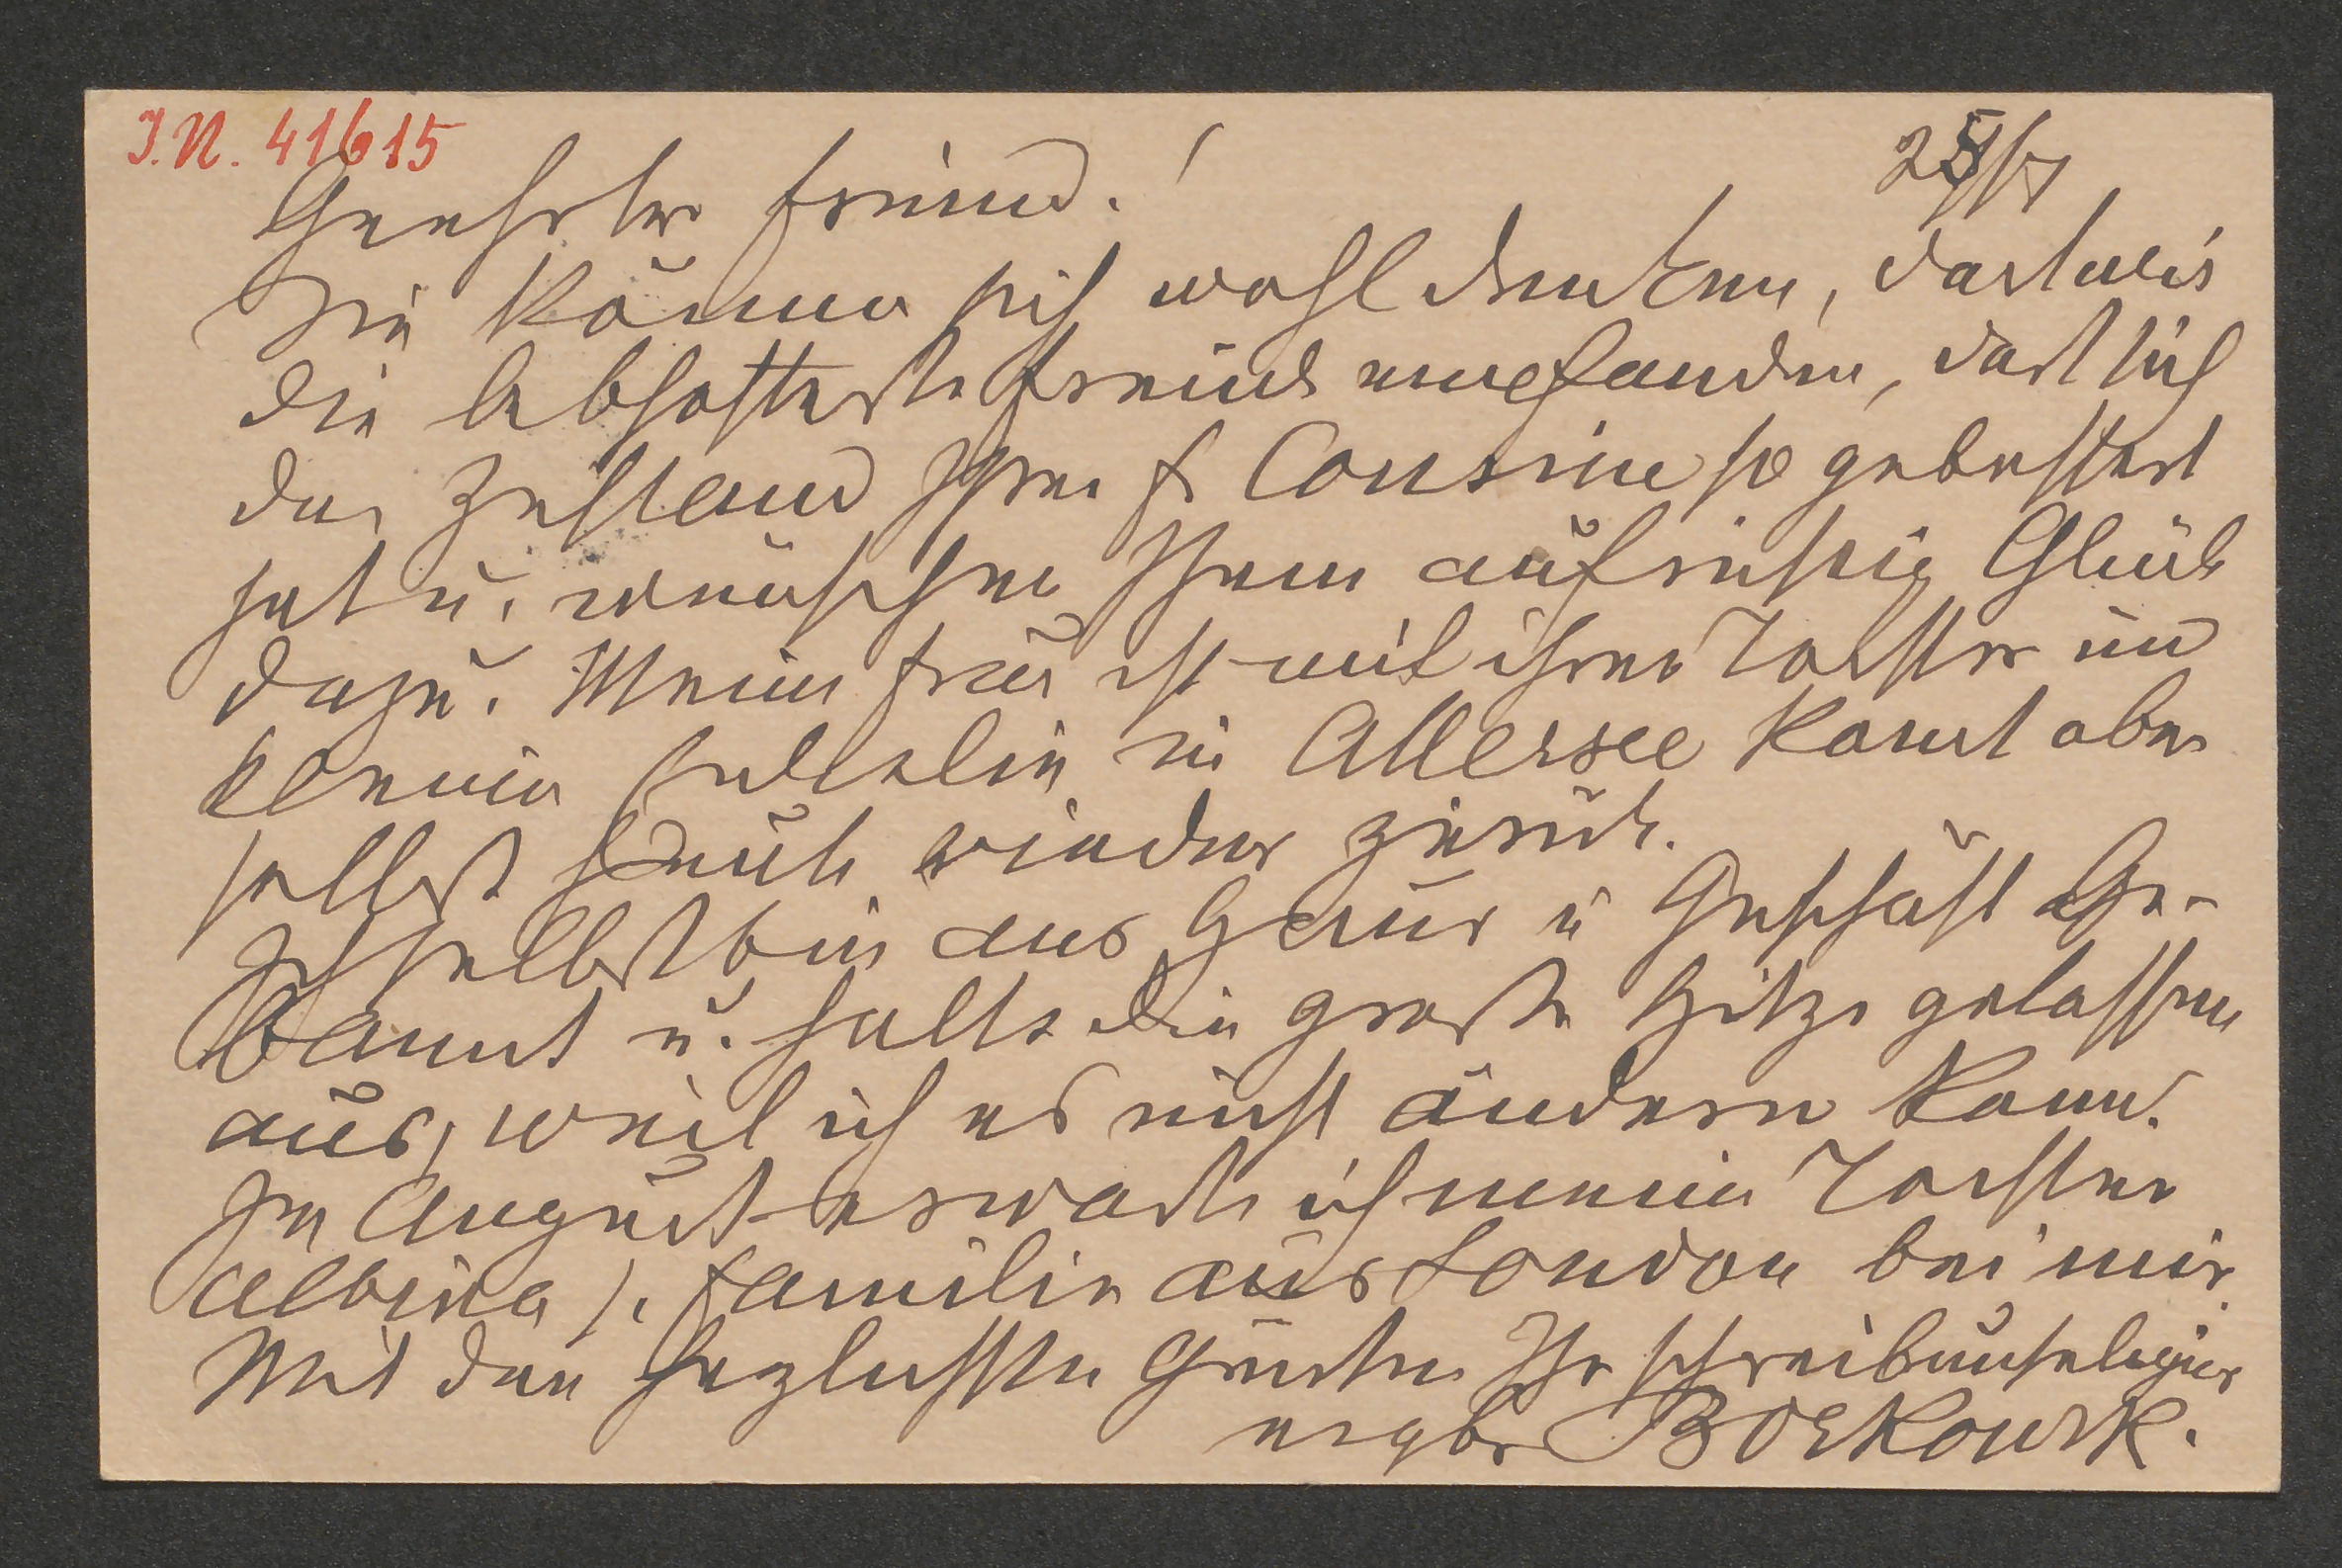 I.N. 41615
25/7
Geehrter Freund!
Sie könen sich wohl denken, dast wir
die lebhafteste Freude empfanden, dast sich
der Zustand Ihrer f Cousine so gebessert
hat u. wünschen Ihnen aufrichtig Glück
dazu. Meine Frau ist mit ihrer Tochter und
kleinen in Attersee komt aber
selbst heute wieder zurück.
Ich selbst bin ans Haus u Geschäft Ge-
bannt u. halte die groste Hitze gelassen
aus, weil ich es nicht ändern kann.
Im August erwarte ich meine Tochter
Albina s. Familie aus London bei mir.
Mit den herzlichsten Grüsten Ihr schreibunseliger
ergbr Boskowik.